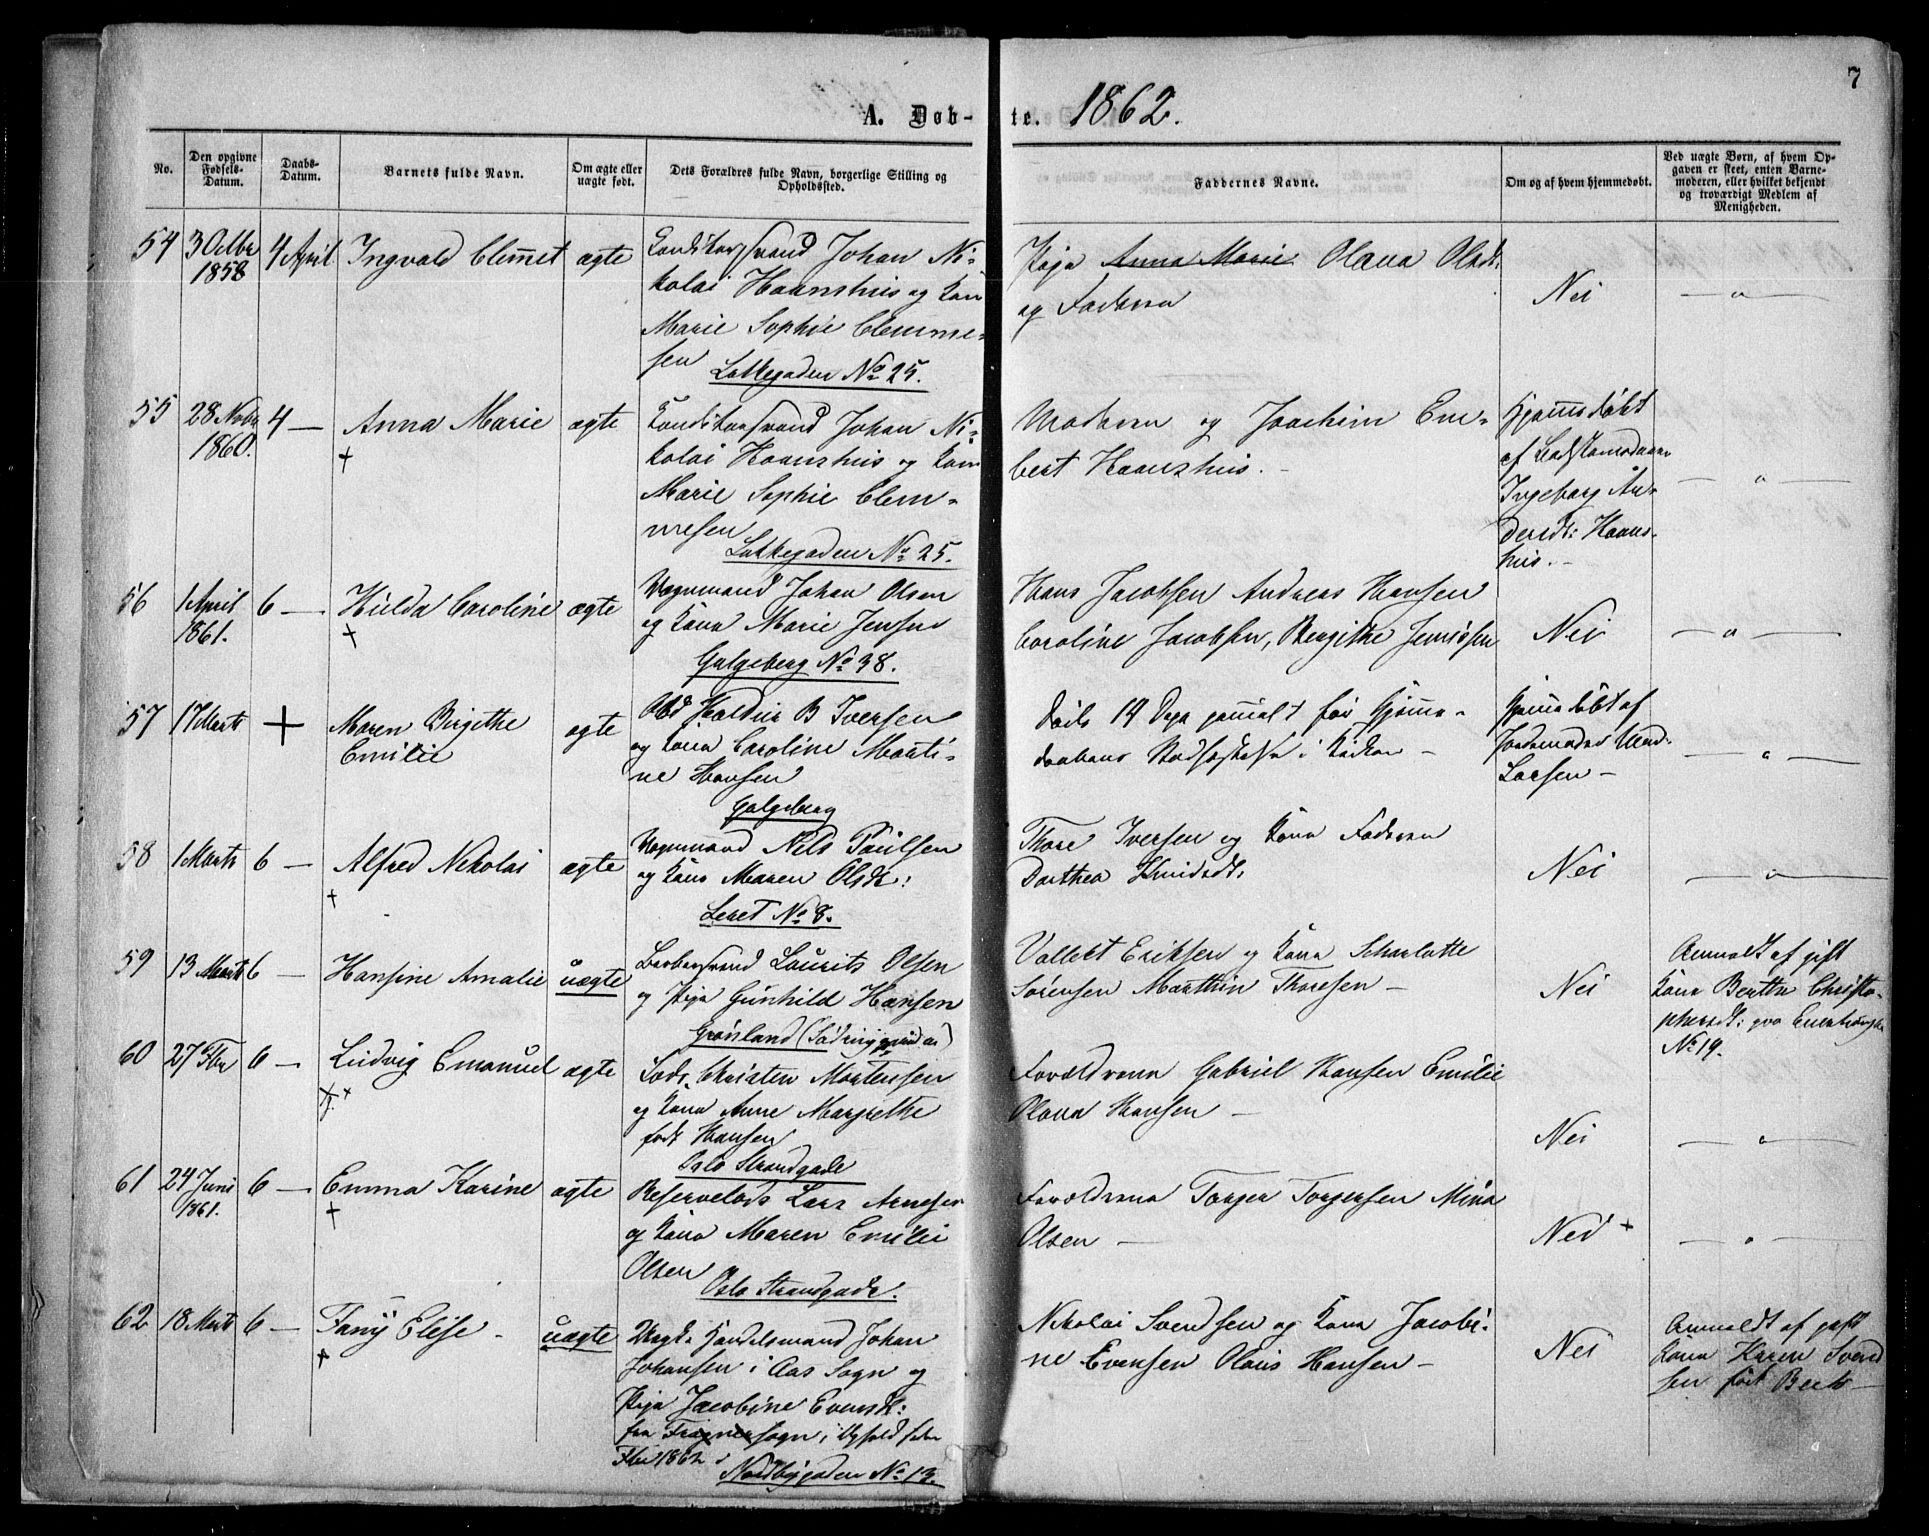 7
A. Døb-te. 1862.
No.
Den opgivne Fødsels-Datum.
Daabs-Datum.
Barnets fulde Navn.
Om ægte eller uægte født.
Dets Forældres fulde Navn, borgerlige Stilling og Opholdssted.
Faddernes Navne.
Om og af hvem hjemmedøbt.
Ved uægte Børn, af hvem Opgaven er skeet, enten Barnemoderen, eller hvilket bekjendt og troværdigt Medlem af Menigheden.
54 3 Octbr 1858 4 April Ingvald Clemet ægte
Konditorsvend Johan Ni-
kolai Haanshus og Kone
Marie Sophie Clemme-
sen
Lakkegaden No 25.
Pige Anna Marie Olava Olsdt:
og Faderen
Nei
— " —
55 28 Novbr 1860. 4 — Anna Marie ægte
+
Konditorsvend Johan Ni-
kolai Haanshus og Kone
Marie Sophie Clem-
mesen
Lakkegaden No 25.
Moderen og Joachim Em-
bert Haanshus. —
Hjemmedøbt
af
Ingeborg An-
dersdt: Haans-
hus. —
— " —
56 1 April 1861. 6 — Hulda Caroline ægte
+
Vognmand Johan Olsen
og Kone Marie Jensen
Galgeberg No 38.
Hans Jacobsen Andreas Hansen
Caroline Jacobsen, Bergithe
Nei
— " —
57 17 Marts + Maren Birgithe
Emilie
ægte
B Iversen
og Kone Caroline Marti-
ne Hansen
Galgeberg
14 Dage gammelt før Hjemme-
daabens Stadfæstelse i Kirken —
Hjemmedøbt af
Jordemoder
Larsen —
— " —
58 1 Marts 6 — Alfred Nikolai ægte
+
Vognmand Nils Paulsen
og Kone Maren Olsdt:
Leret No 8.
Thore Iversen og Kone Faderen
Dorthea Knudsdt:
Nei
— " —
59 13 Marts 6 — Hansine Amalie uægte
Barbersvend Laurits Olsen
og Pige Gunhild Hansen
Grønland
Eriksen og Kone Scharlotte
Sørensen Marthin Thoresen —
Nei
Anmeldt af gift
Kone Berthe Christo-
phersdt:
No 19.
60 27 Fbr 6 — Ludvig Emanuel ægte
Lods Christen Mortensen
og Kone Anne Margrethe
født Hansen
Oslo Strandgade
Forældrene Gabriel Hansen Emilie
Olava Hansen —
Nei
— " —
61 24 Juni 1861. 6 — Emma Karine ægte
+
Reservelods Lars Arnesen
og Kone Maren Emilie
Olsen
Oslo Strandgade.
Forældrene Torger Torgersen Mina
Olsen —
Nei +
— " —
62 18 Marts 6 — Fanny Elise - uægte
+
Handelsmand Johan
Johansen i Aas Sogn og
Pige Jacobine Evensdt:
fra
Fbr 1862 i
Nordbygaden No 13.
Nikolai Svendsen og Kone Jacobi-
ne Evensen Olaus Hansen —
Nei
Anmeldt af gift
Kone Karen Svend-
sen født Beck —